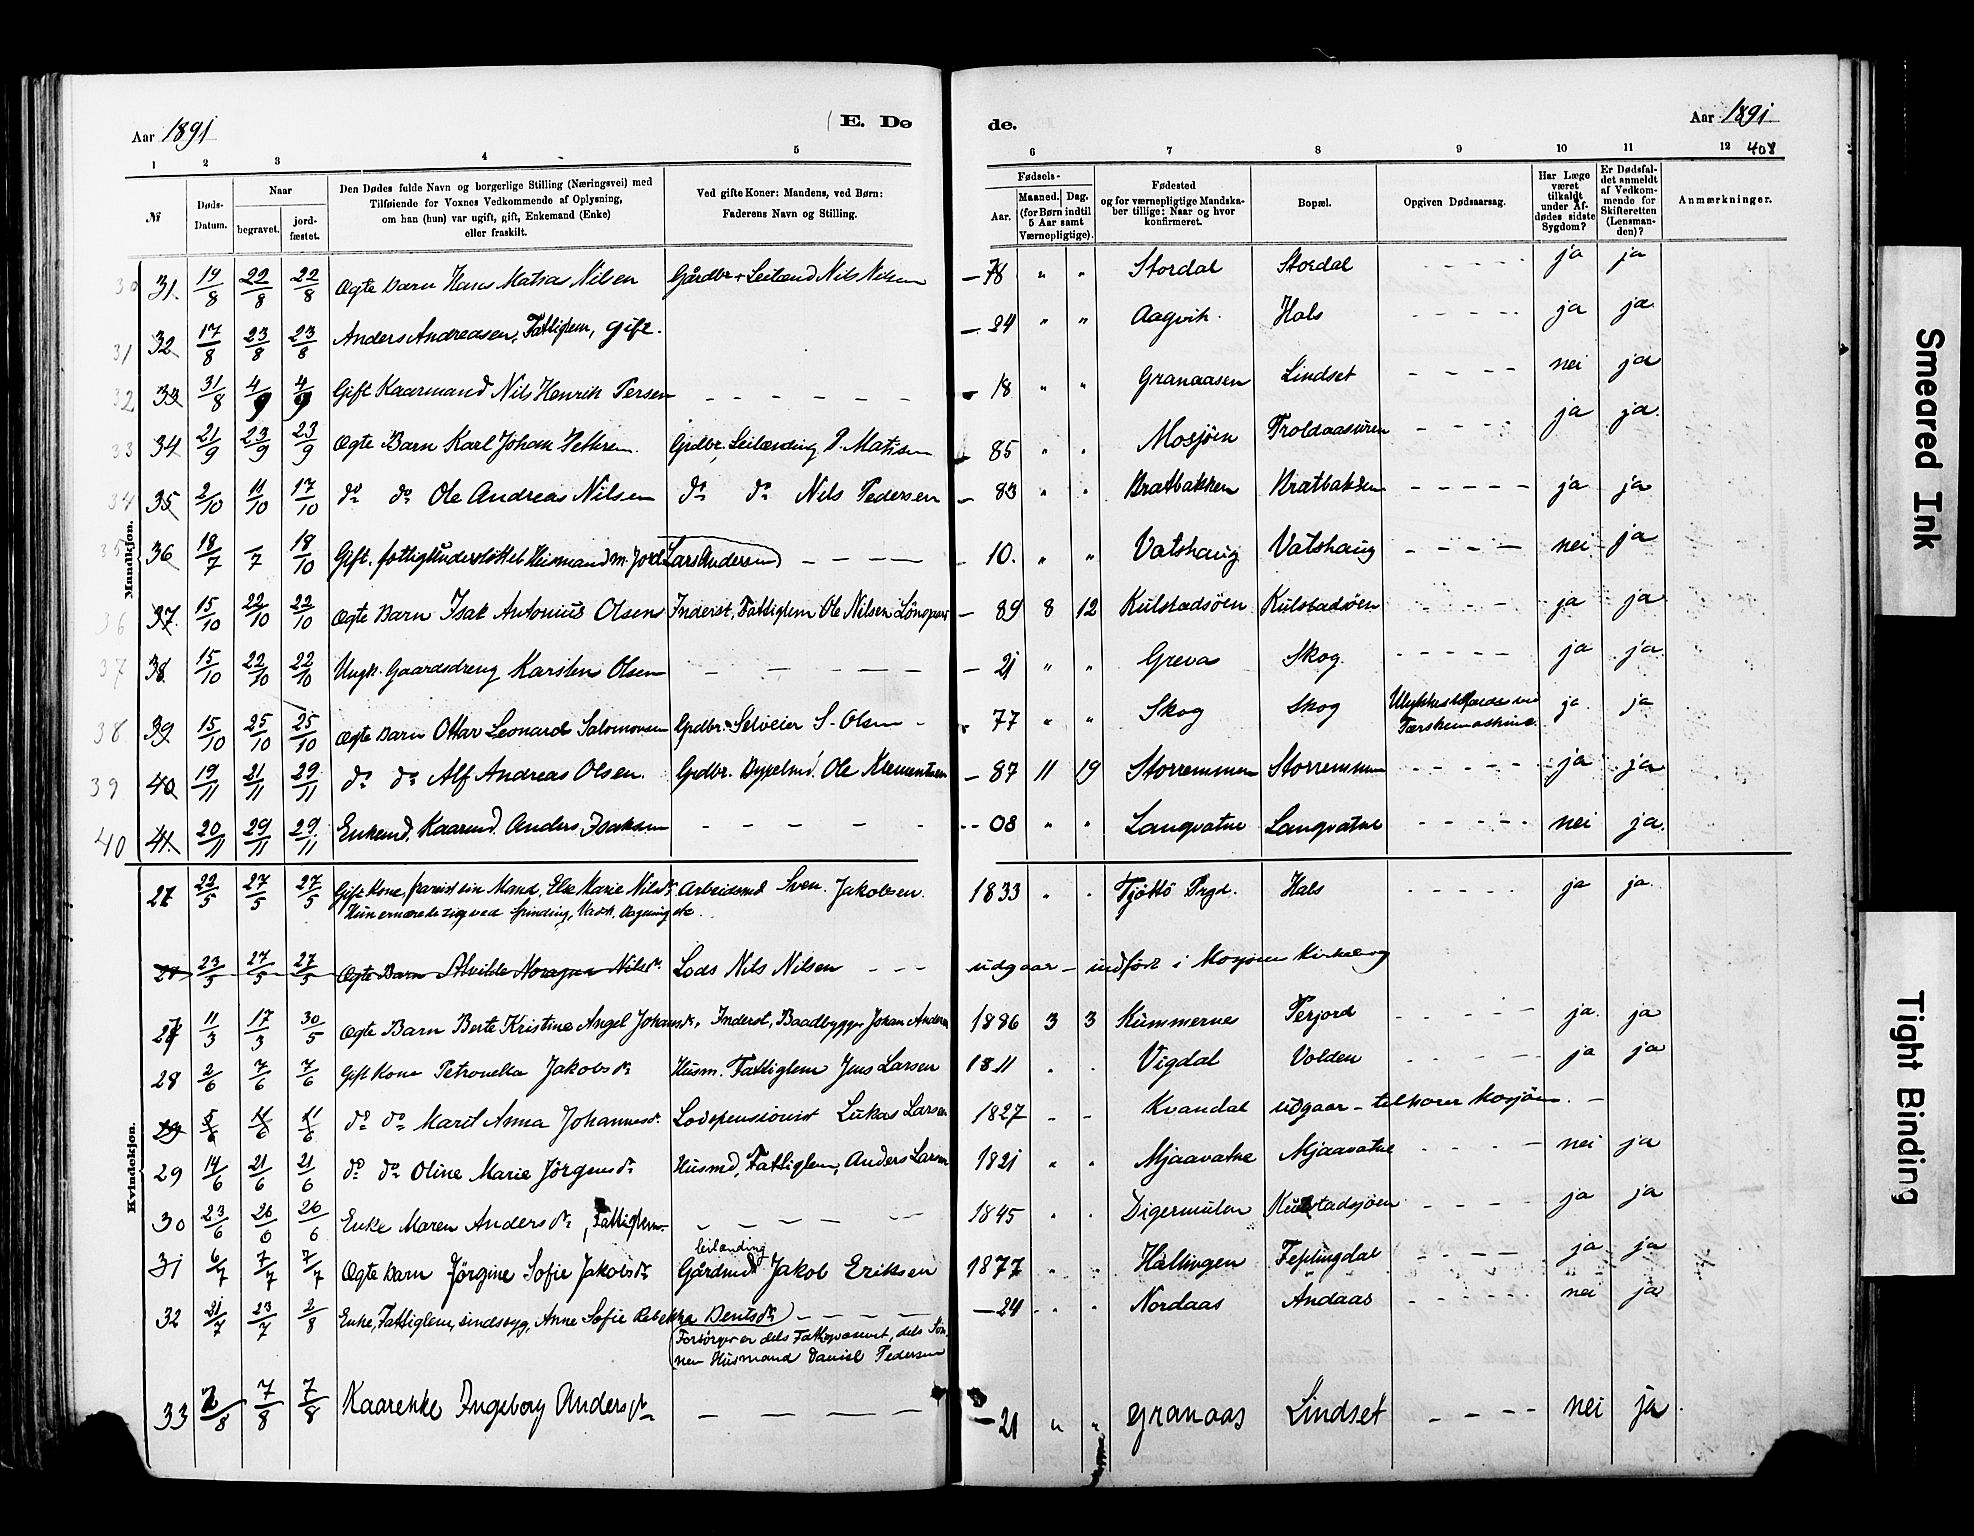 Aar 1891
E. Dø
de.
Aar 1891
408
1 2 3 4 5 6 7 8 9 10 11 12
№
Døds-Datum.
Naar
begravet. jord-fæstet.
Den Dødes fulde Navn og borgerlige Stilling (Næringsvei) med
Tilføiende for Voxnes Vedkommende af Oplysning,
om han (hun) var ugift, gift, Enkemand (Enke)
eller fraskilt.
Ved gifte Koner: Mandens, ved Børn:
Faderens Navn og Stilling.
Fødsels-
Aar. Maaned. Dag.
(for Børn indtil
5 Aar samt
Værnepligtige).
Fødested
og for værnepligtige Mandska-
ber tillige: Naar og hvor
konfirmeret.
Bopæl.
Opgiven Dødsaarsag.
Har Læge
været
tilkaldt
under Af-
dødes sidste
Sygdom?
Er Dødsfal-
det anmeldt
af Vedkom-
mende for
Skifteretten
(Lensman-
den)?
Anmærkninger.
Mandkjøn.
30 31. 19/8 22/8 22/8 Ægte Barn Hans Matias Nilsen Gårdbr. Leilænd Nils Nilsen – 78 " " Stordal Stordal - - - - - ja ja
31 32 17/8 23/8 23/8 Anders Andreasen, Fattiglem, gift. – 24 " " Aagvik. Hals - - - - - ja ja.
32 33 31/8 4/9 4/9 Gift Kaarmand Nils Henrik Persen – – – – – – – 18 " " Granaasen Lindset - - - - nei ja
33 34 21/9 23/9 23/9 Ægte Barn Karl Johan Petters. Grdbr. Leilænding P. Matisen 85 " " Mosjöen Troldaasuren - - - - ja ja.
34 35 2/10 11/10 17/10 do do Ole Andreas Nilsen do do Nils Pedersen – 83 " " Bratbakken Bratbakken - - - - - ja ja
35 36 18/7 /7 18/10 Gift. fattigunderstöttet Husmand m. Jord Lars Andersen – – – – – 10. " " Vatshaug Vatshaug - - - - nei ja
36 37. 15/10 22/10 22/10 Ægte Barn Isak Antonius Olsen Inderst, Fattiglem Ole Nilsen – 89 8 12 Kulstadsöen Kulstadsöen - - - - ja ja
37 38 15/10 22/10 22/10 Ungk. Gaardsdreng Karsten Olsen – – – – – 21 " " Grevas Skog. - - - - - ja ja
38 39 15/10 25/10 25/10 Ægte Barn Ottar Leonard Salomonsen Grdbr. Selveier S. Olsen – 77 " " Skog Skog Ulykkestilfælde ved ja. ja
Tærskemaskine.
39 40 19/11 21/11 29/11 do do Alf Andreas Olsen. Grdbr. Ole Klementsen – 87 11 19 Storremmen Storremmen - - - - - ja ja
40 41. 20/11 29/11 29/11 Enkemd. Kaarmd. Anders Isaksen – – – – – – – 08 " " Langvatne Langvatne - - - - - nei ja.
Kvindekjøn.
22/5 27/5 27/5 Gift Kone, Mand, Else Marie Nilsd. Arbeidsmd Sven Jakobsen. 1833 " . Tjöttö Prgd. Hals - - - - - ja ja.
Hun ernærede sig ved Spinding, etc.
23/5 27/5 27/5 Ægte Barn Alvilde Nilsd. Lods Nils Nilsen – – – udgaar – indfört i Mosjöens Kirkebog
27 11/3 17/3 30/5 Ægte Barn Berte Kristine Angel Johansd. Inderst, Baadbygger Johan Andersen 1886 3 3 Kummernes Perjord - - - - - ja. ja
28 2/6 7/6 7/6 Gift Kone Petronella Jakobsd. Husm. Fattiglem Jens Larsen 1811 . . Vigdal Volden - - - - - ja ja
29 5/6 11/6 11/6 do do Marit Anna Johannesd. Lodspensionist Lukas Larsen 1827 – – Kvandal udgaar – tilhører Mosjöen. –
29 14/6 21/6 21/6 do do Oline Marie Jörgensd. Husmd, Fattiglem, Anders Larsen 1821 " . Mjaavatne Mjaavatne - - - - nei ja
30 23/6 26/6 26/6 Enke Maren Andersd., Fattiglem. – – – – – – 1845 . . Digermulen Kulstadsjöen - - - - - ja ja
Leilænding
31 6/7 7/7 7/7 Ægte Barn Jörgine Sofie Jakobsd. Gårdmd Jakob Eriksen 1877 " .. Hallingen Feplingdal - - - - ja ja
32 21/7 23/7 2/8 Enke, Fattiglem, sindssyg, Anne Sofie Rebekka Bentsd. – – – – – 24 . . Nordaas Andaas - - - - - nei ja
Forsörger er dels Fattigvæsnet, dels Søn-
nen Husmand Daniel Pedersen
33 2/8 7/8 7/8 Kaarenke Ingeborg Andersd. – – – – – 21 " " Granaas Lindset - - - - nei ja
Smeared Ink
Tight Binding